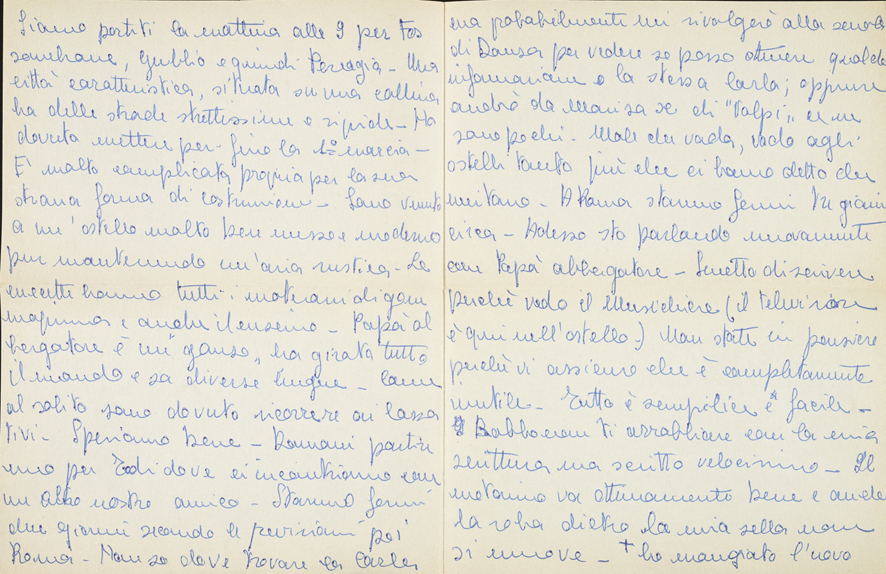 Siamo partiti la mattina alle 9 per Fos
sombrone, Gubbio e quindi Perugia - Una
città caratteristica, situata su una collina
ha delle strade strettissime e ripide - Ho
dovuto mettere per-fino la 1° marcia -
E' molto complicata proprio per la sua
strana forma di costruzioni - Sono venuto
a un'ostello molto bene messo e moderno
pur mantenendo un'aria rustica - Le
hanno tutti i materassi di gom
mapiuma e anche il cuscino - Papà al
bergatore è un "ganzo" ha girato tutto
il mondo e sa diverse lingue - Come
al solito sono dovuto ricorrere ai lassa
tivi - Speriamo bene - Domani partire
mo per Todi dove ci incontriamo con
un altro nostro amico - Staremo fermi
due giorni secondo le previsioni poi
Roma - Non so dove trovare la Carla
ma probabilmente mi rivolgerò alla scuola
di Danza per vedere se posso ottenere qualche
informazione o la stessa Carla; oppure
andrò da Marisa se di "Volpi" ce ne
sono pochi - Male che vada, vado agli
ostelli tanto più che ci hanno detto che
meritano - A Roma staremo fermi tre giorni
circa - Adesso sto parlando nuovamente
con Papà albergatore - Smetto di scrivere
perchè vedo il Musichiere (il televisore
è qui nell'ostello.) Non state in pensiero
perchè vi assicuro che è completamente
inutile - Tutto è semplice e facile -
Babbo non ti arrabbiare con la mia
scrittura ma scritto velocissimo - Il
motorino va ottimamente bene e anche
la roba dietro la mia sella non
si muove - + ho mangiato l'uovo